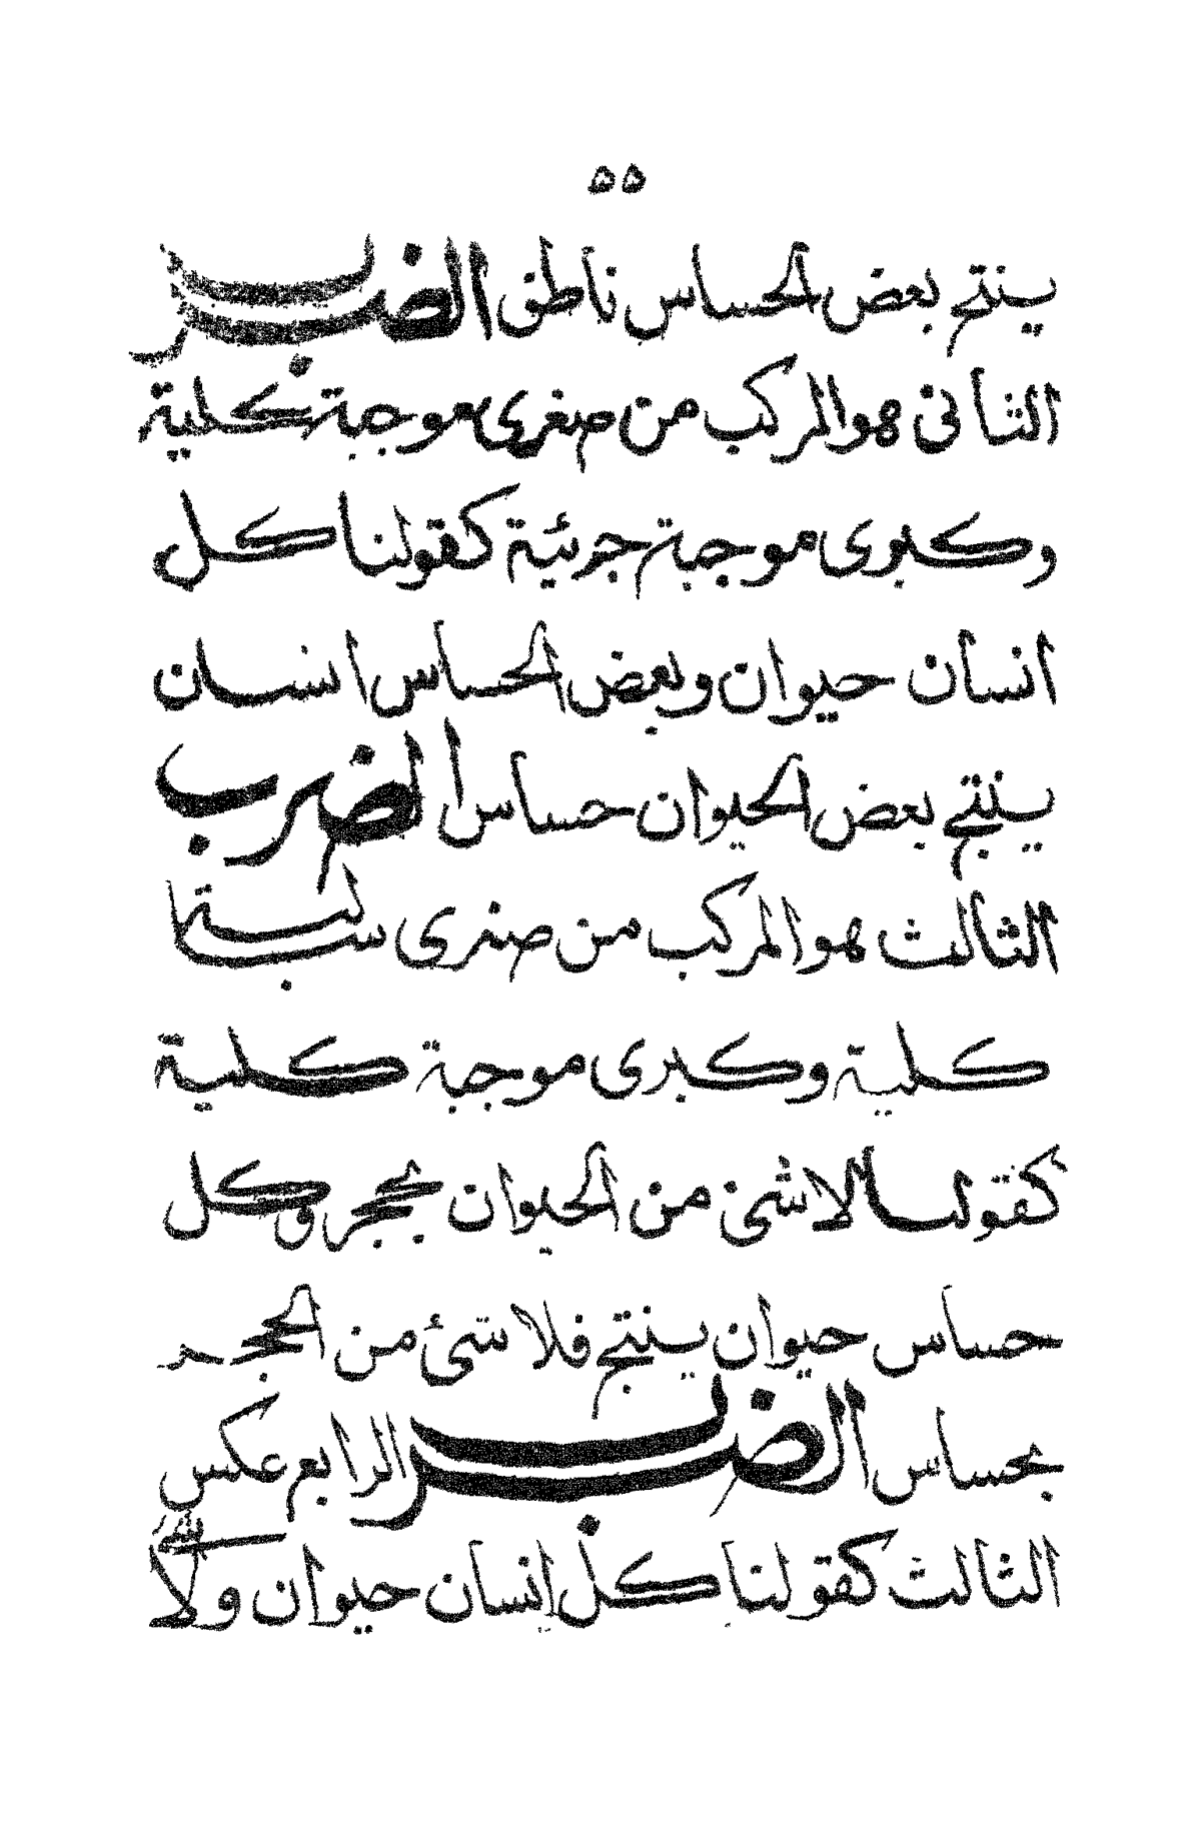 ٥٥
ينتج بعض الحساس ناطق الضرب
الثانى هو المركب من صغرى موجبة كلية
وكبرى موجبة جزئية كقولنا كل
انسان حيوان وبعض الحساس انسان
ينتج بعض الحيوان حساس الضرب
الثالث هو المركب من صغرى سالبة
كلية وكبرى موجبة كلية
كقولنا لاشئ من الحيوان بحجر وكل
حساس حيوان ينتج فلا شئ من الحجر
بحساس الضرب الرابع عكس
الثالث كقولنا كل انسان حيوان ولا شئ